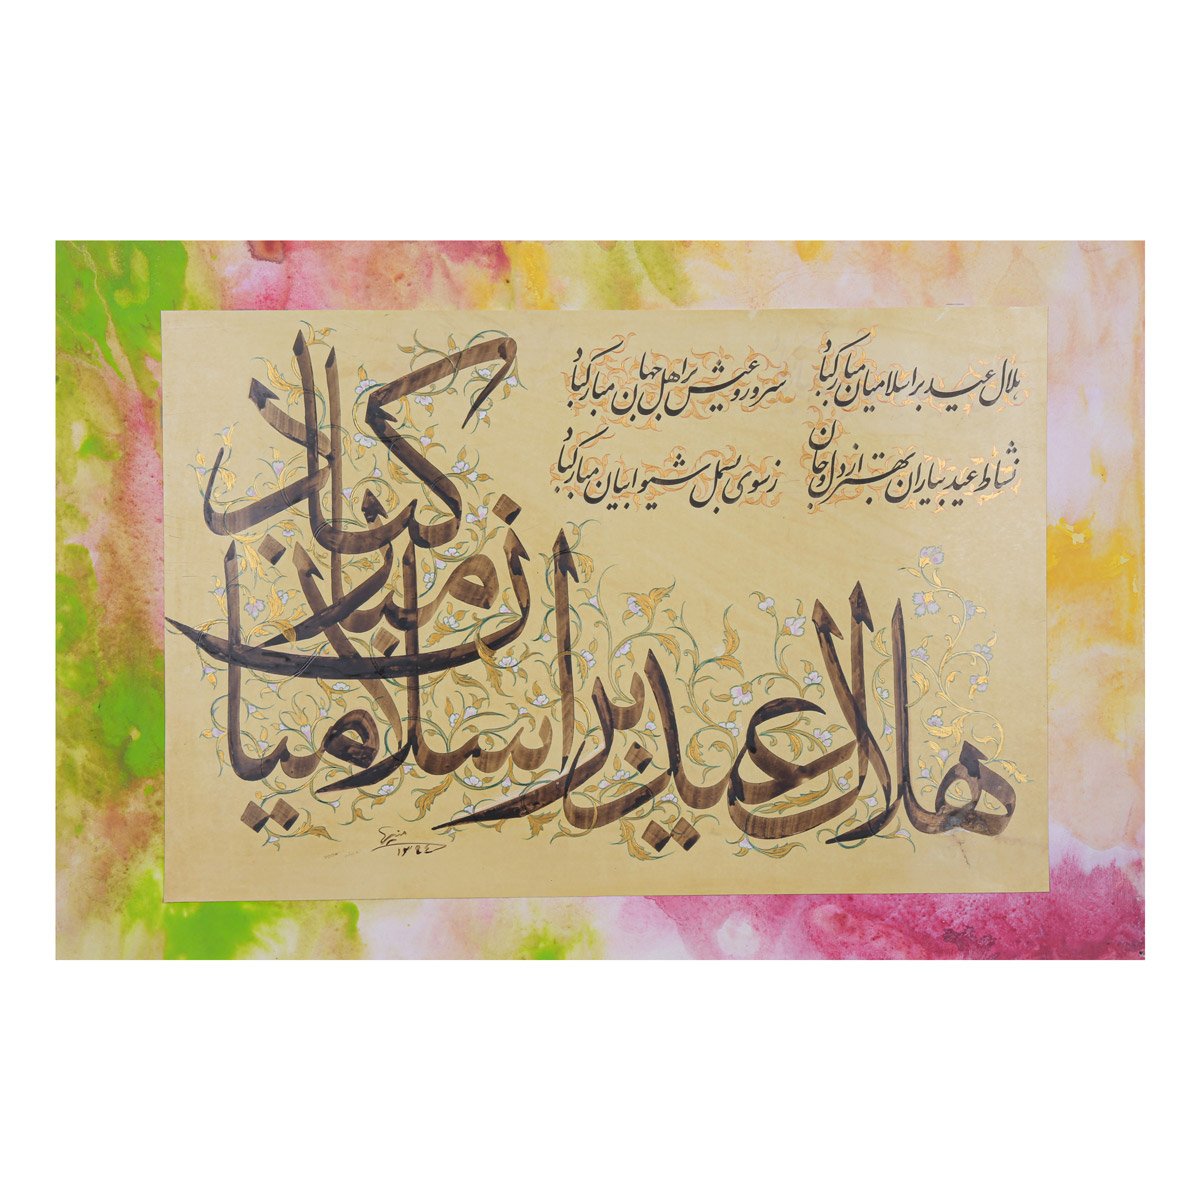 هلال عید بر اسلامیان مبارکباد سرور و عیش بر اهل جهان مبارکباد
نشاط عید بیاران بهتر از دل و جان ز سوی بسمل شیوا بیان مبارکباد
هلال عید بر اسلامیان مبارکباد
۱۳۹۴